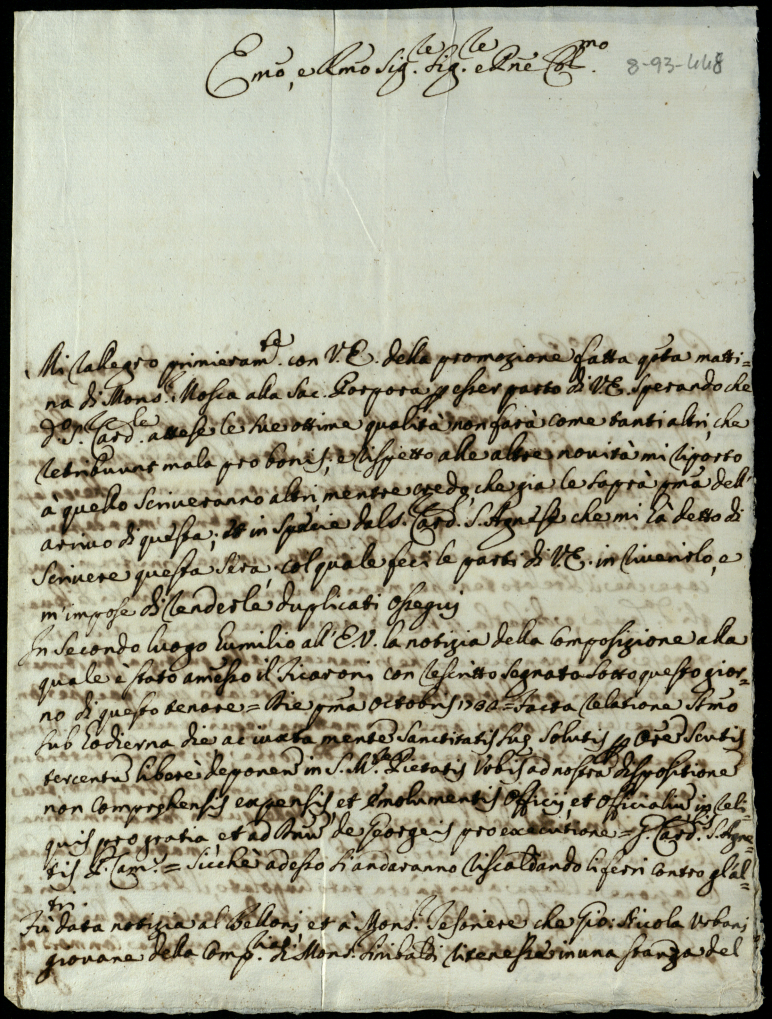 Emo, e Rmo Sig.re Sig.re e Pne Col.mo
8-93-448
Mi rallegro primieram.te con V.E. della promozione fatta qsta matti-
na di Mons.r Mosca alla Sac. Porpora p esser parto di V.E. sperando che
d.o S.r Card.le attese le sue ottime qualità non farà come tanti altri, che
retribuunt mala pro bonis; e rispetto alle altre novità mi riporto
à quello scriveranno altri, mentre credo, che già le saprà pma dell'
arrivo di questa; et in specie dal S. Card. S. Agnese che mi hà detto di
scrivere questa sera, col quale feci le parti di V.E. in riverirlo, e
m'impose di renderle duplicati ossequij
In secondo luogo humilio all'E.V. la notizia della composizione alla
quale è stato amesso il Ficaroni con rescritto segnato sotto questo gior-
no di questo tenore = Die pma Octobris 1732 = Facta relatione SSmo
sub hodierna die ac iuxta mentem Sanctitatis suę solutis p Orem scutis
tercentum liberè deponend in S. M.te Pietatis Urbis ad nostra dispositione
non comprehensis expensis et emolumentis officij, et officialium in reli-
quis pro gratia, et ad Dnum de Georgeis pro executione = G. Card. S. Agne-
tis P. Cam.s = Sicchè adesso si andaranno riscaldando li ferri contro gl'al-
tri.
Fù data notizia al Belloni et à Mons.r Tesoriere che Gio: Nicola Urbani
giovane della Comp.a di Mons.r Sinibaldi ritenesse in una stanza del